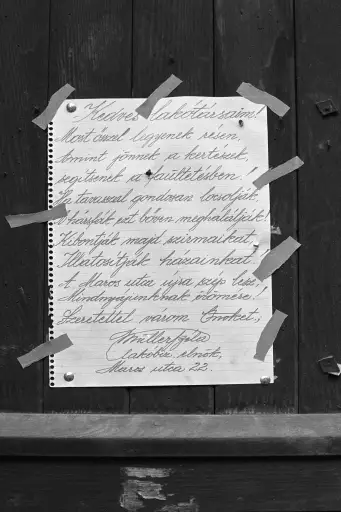 Kedves lakótársaim!
Most ősszel legyenek résen,
Amint jönnek a kertészek,
segítsenek a faültetésben!
Ha tavasszal gondosan locsolják,
A hársfák ezt bőven meghálálják!
Kibontják majd szirmaikat,
Illatosítják házainkat!
A Maros utca újra szép lesz,
Mindnyájunknak örömére!
Szeretettel várom Önöket,
Müller Gyula
lakóbiz. elnök,
Maros utca 22.